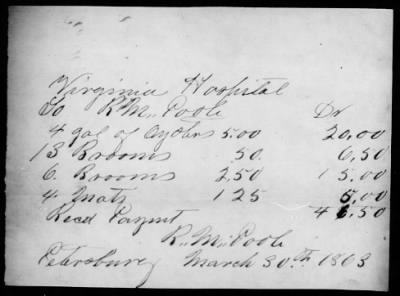 Virginia Hospital
To R. M. Poole Dr
4 gal of Oysters 5.00 20.00
13 Brooms 50 6.50
6 Brooms 2.50 15.00
4 Mats 1 25 5.00
Recd Payment 46.50
R. M. Poole
Petersburg March 30th 1863